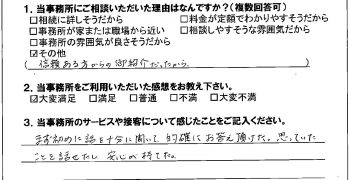 1. 当事務所にご相談いただいた理由はなんですか？（複数回答可）
□相続に詳しそうだから □料金が定額でわかりやすそうだから
□事務所が家または職場から近い □相談しやすそうな雰囲気だから
□事務所の雰囲気が良さそうだから
☑その他
（信頼ある方からの御紹介だったから。）
2. 当事務所をご利用いただいた感想をお教え下さい。
☑大変満足 □満足 □普通 □不満 □大変不満
3. 当事務所のサービスや接客について感じたことをご記入ください。
まず初めに話を十分に聞いて、的確にお答え頂けた。思っていた
ことを話せたし、安心が持てた。